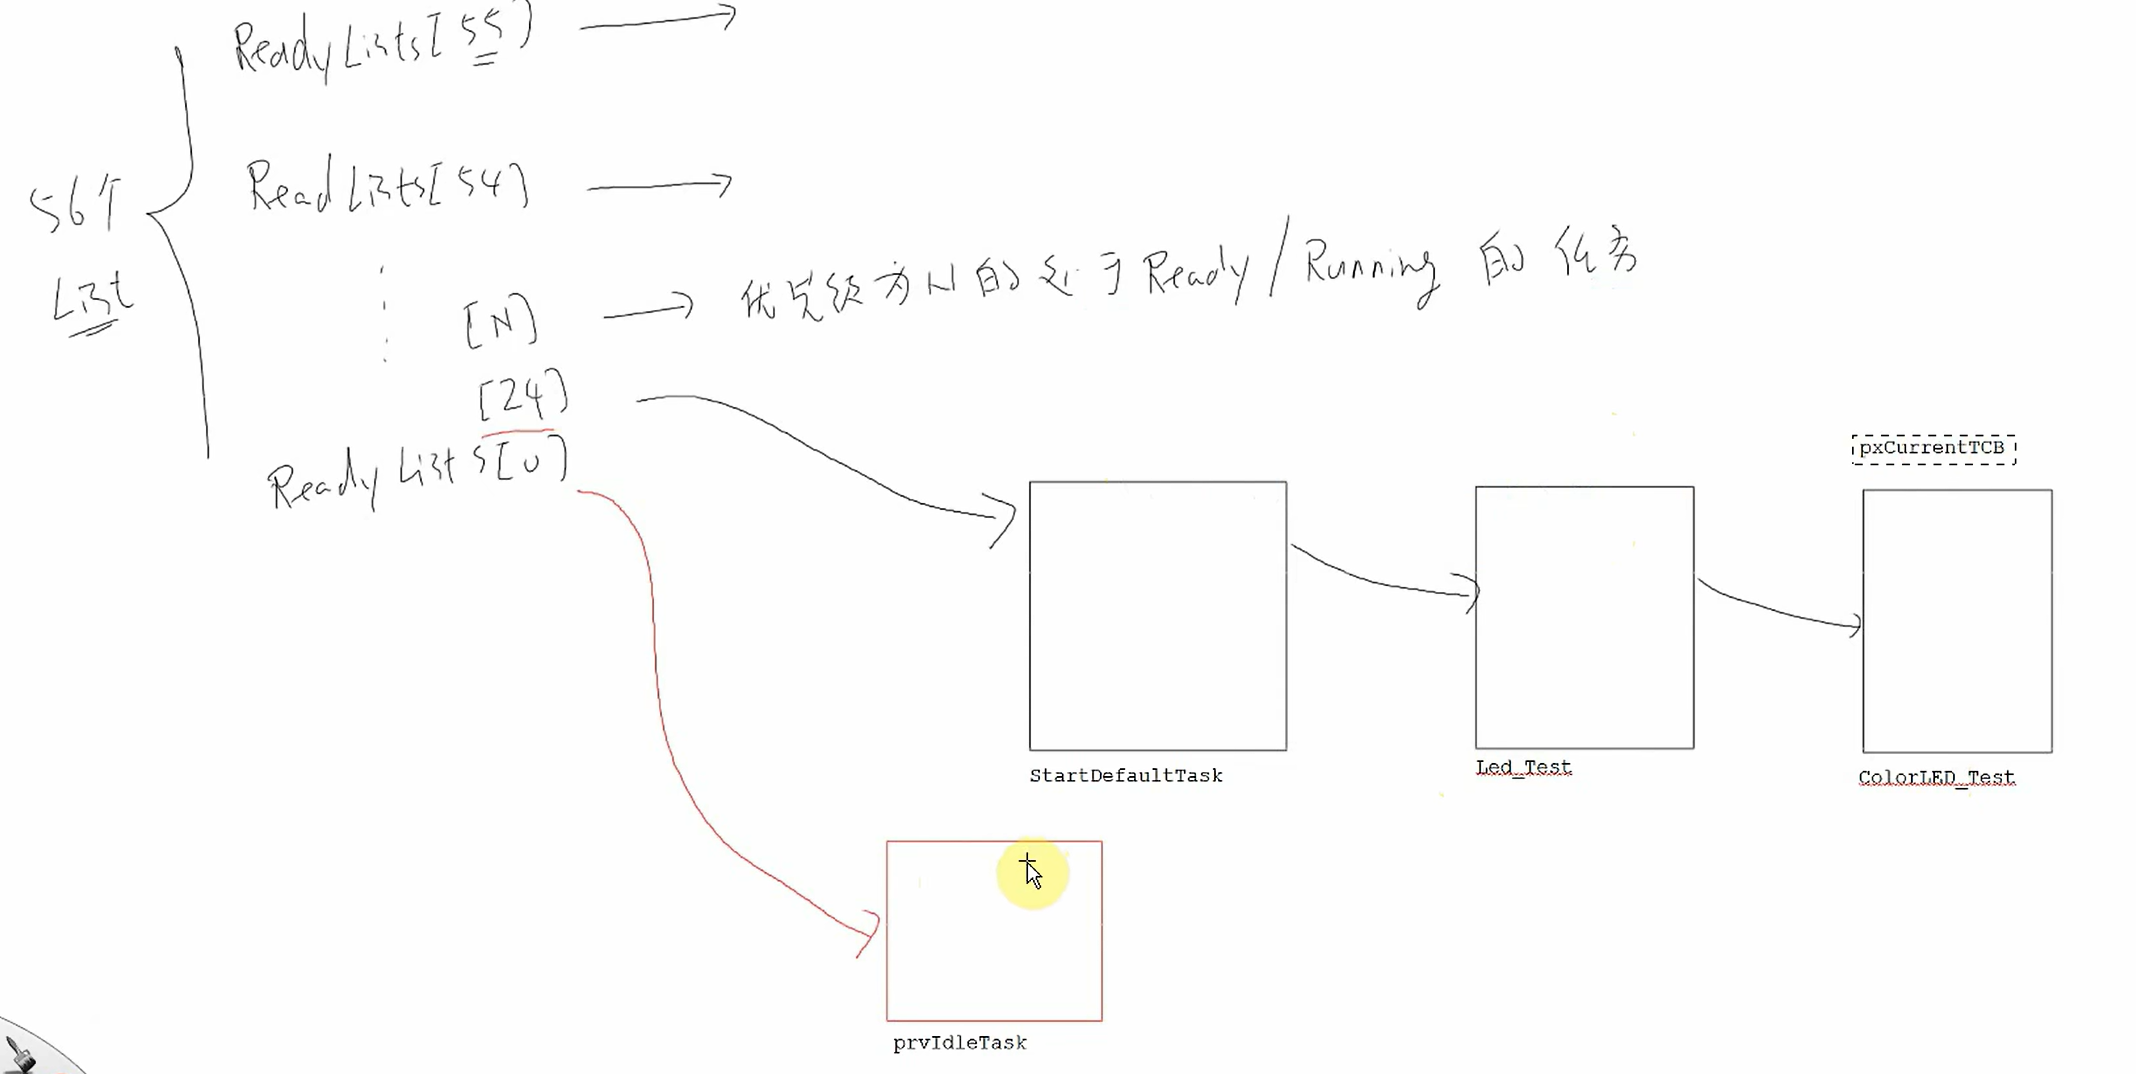 ReadyLists[55]
56个
List
ReadLists[54]
[N]
优先级为N的处于Ready/Running的任务
[24]
ReadyLists[0]
pxCurrentTCB
StartDefaultTask
Led_Test
ColorLED_Test
prvIdleTask